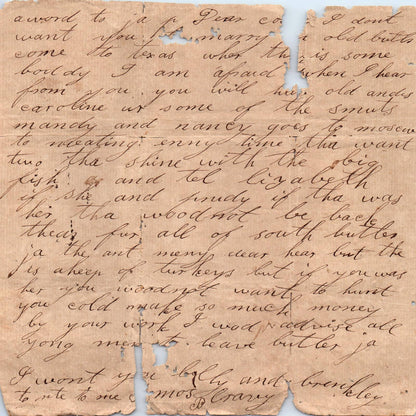 a word to ja P Dear co I dont
want you to marry a old butts
come to texas whar thar is some
boddy I am afraid when I hear
from you you will hav old ands
caroline ur some of the smuts
mandy and nancy goes to moscow
to meating enny time tha want
two tha shine with the big
fish and tel lizabeth
if she and prudy if tha was
her tha wood not be back
thear fur all of south butler
ja the ant meny dear hear but the
is a heep of turkeys but if you was
her you wood not want to hunt
you cold make so much money
by your work I wod advise all
yong men to leave butler ja
I wont you billy and
to rite to me amos Cravy